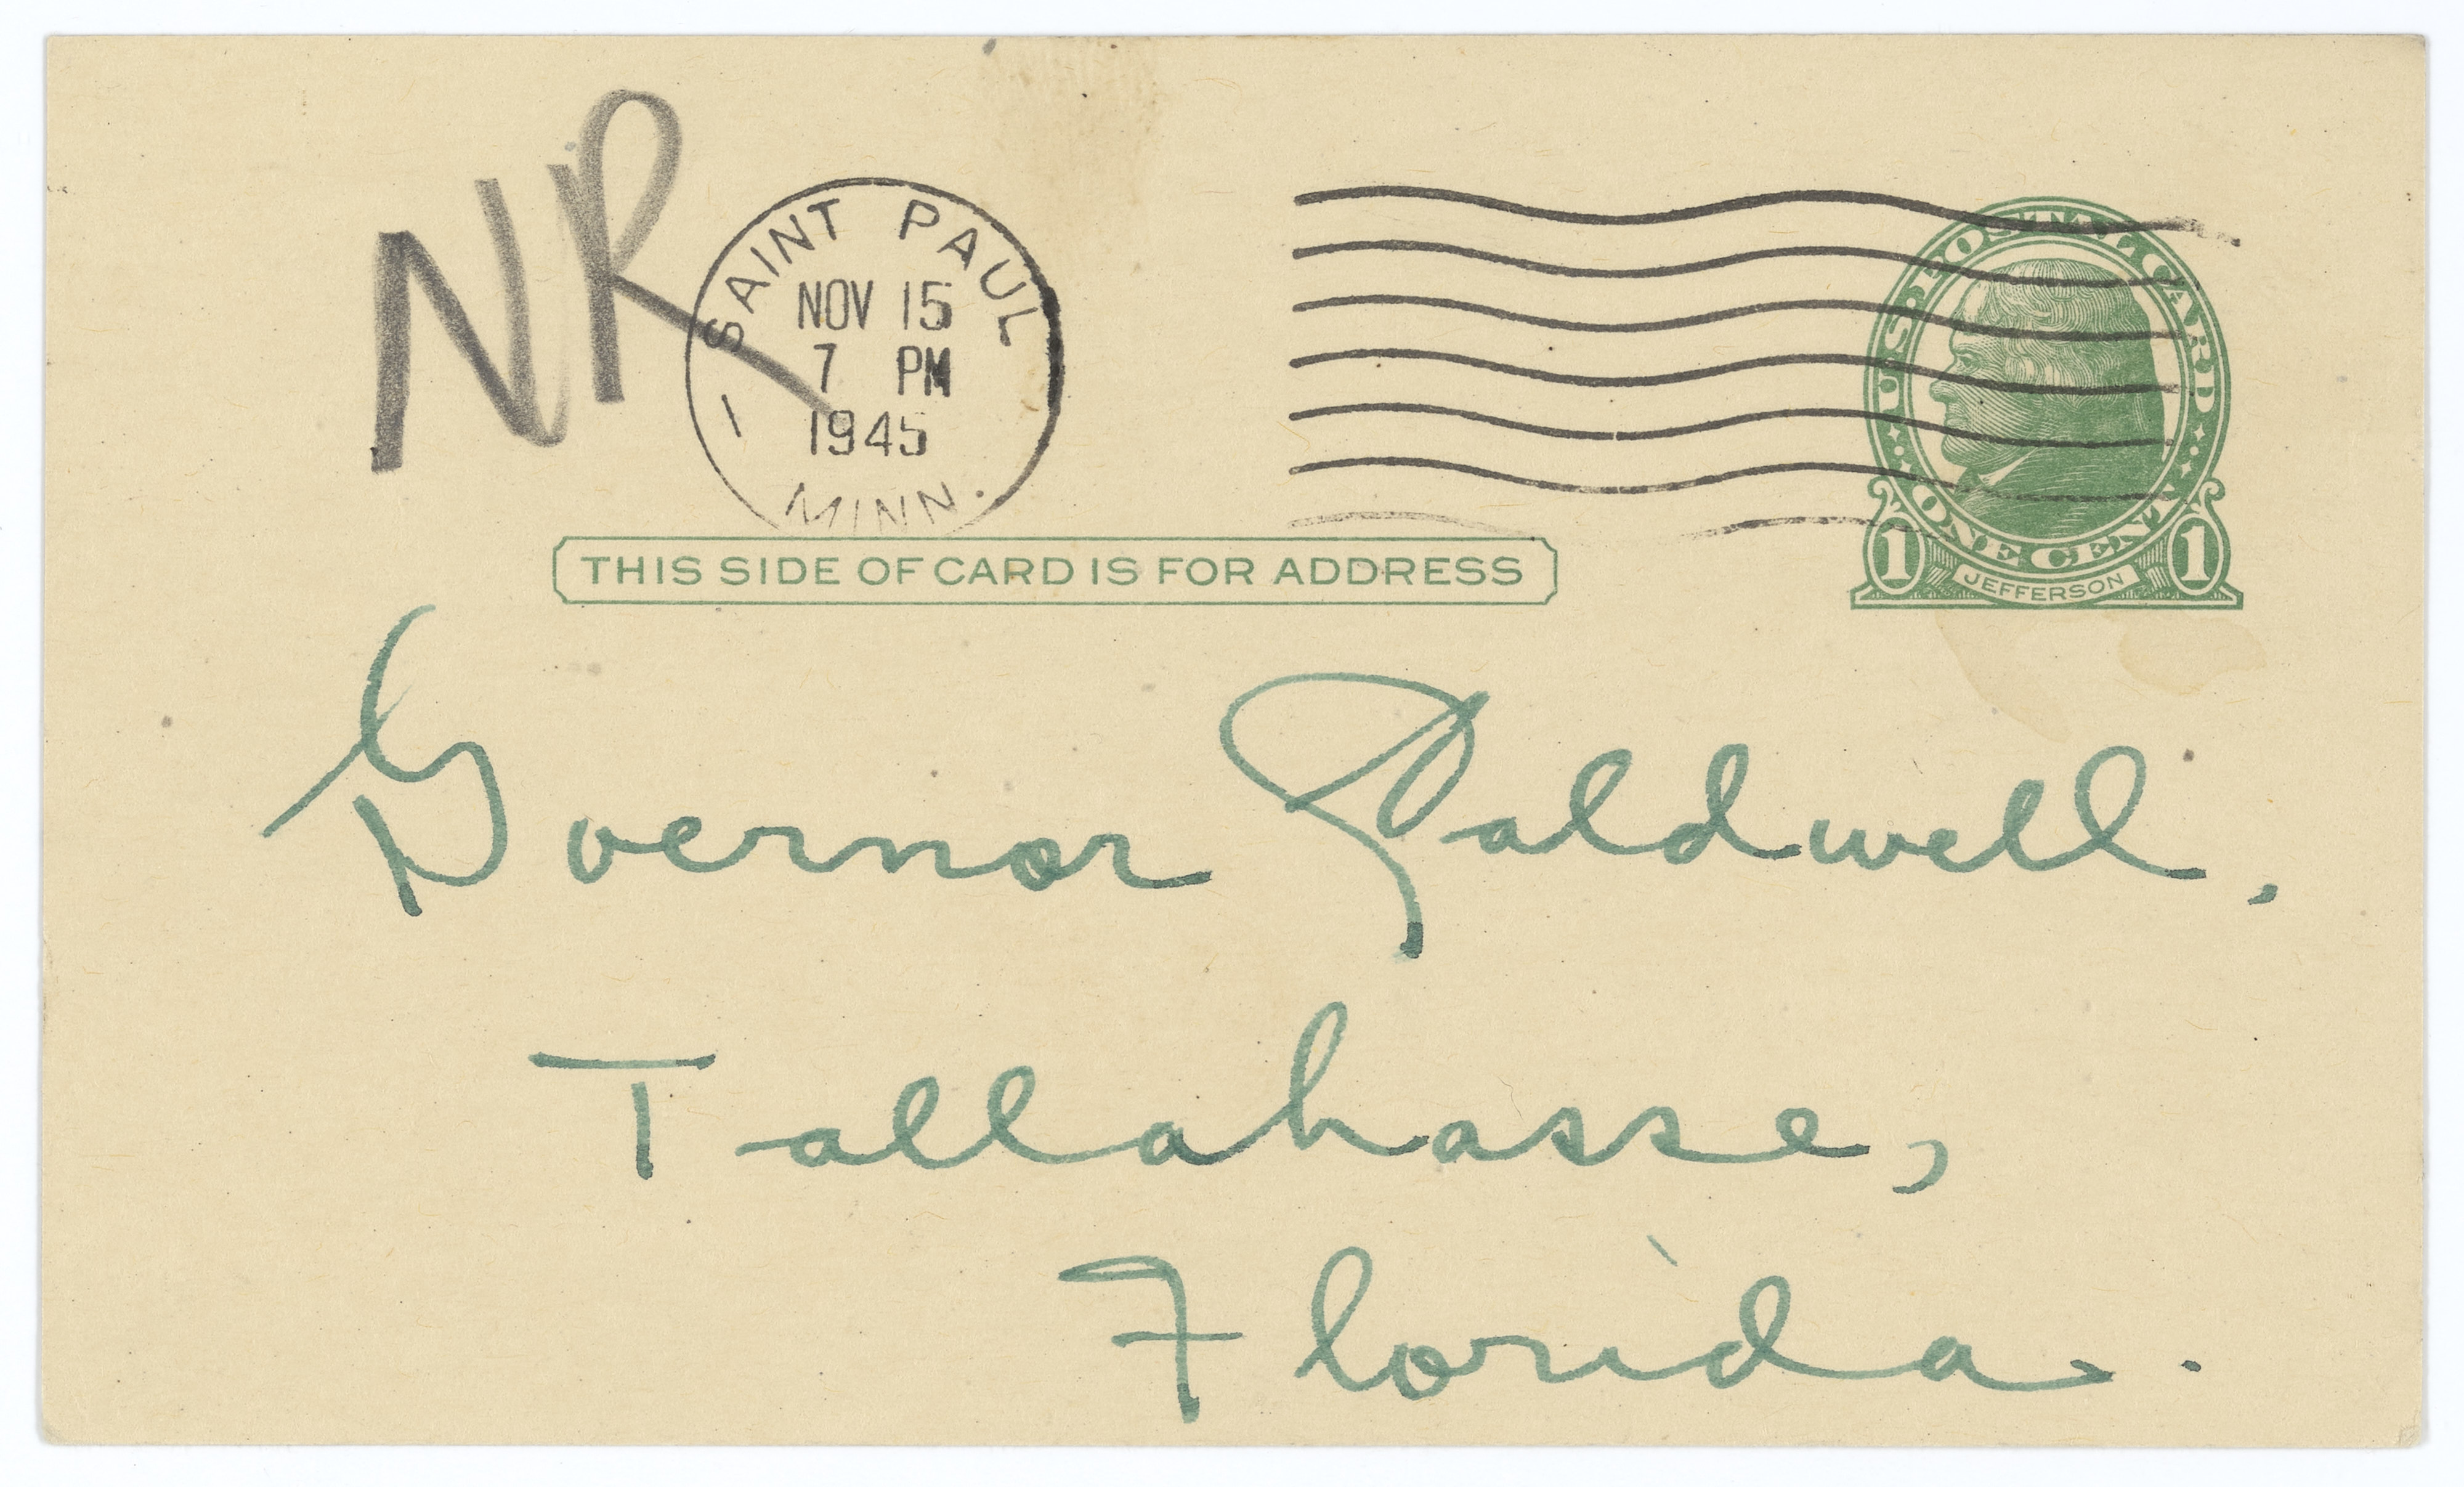 NR
SAINT PAUL
NOV 15
7 PM
1945
1
MINN.
U.S. POSTAL CARD
ONE CENT
1 JEFFERSON 1
THIS SIDE OF CARD IS FOR ADDRESS
Governor Caldwell,
Tallahasse,
Florida.